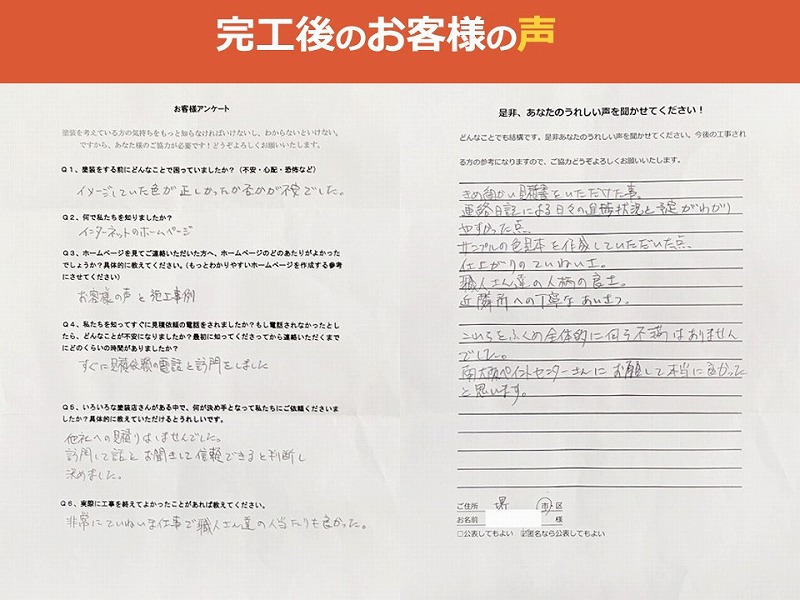 完工後のお客様の声
お客様アンケート
塗装を考えている方の気持ちをもっと知らなければいけないし、わからないといけない。
ですから、あなた様のご協力が必要です！どうぞよろしくお願いいたします。
Ｑ１、塗装をする前にどんなことで困っていましたか？（不安・心配・恐怖など）
イメージしていた色が正しかったか否かが不安でした。
Ｑ２、何で私たちを知りましたか？
インターネットのホームページ
Ｑ３、ホームページを見てご連絡いただいた方へ、ホームページのどのあたりがよかった
でしょうか？具体的に教えてください。（もっとわかりやすいホームページを作成する参考
にさせてください）
お客様の声と施工事例
Ｑ４、私たちを知ってすぐに見積依頼の電話をされましたか？もし電話されなかったとし
たら、どんなことが不安になりましたか？最初に知ってくださってから連絡いただくまで
にどのくらいの時間がありましたか？
すぐに見積依頼の電話と訪問をしました
Ｑ５、いろいろな塗装店さんがある中で、何が決め手となって私たちにご依頼くださいま
したか？具体的に教えていただけるとうれしいです。
他社への見積りはしませんでした。
訪問して話とお聞きして信頼できると判断し
決めました。
Ｑ６、実際に工事を終えてよかったことがあれば教えてください。
非常にていねいな仕事で職人さん達の人当たりも良かった。
是非、あなたのうれしい声を聞かせてください！
どんなことでも結構です。是非あなたのうれしい声を聞かせてください。今後の工事され
る方の参考になりますので、ご協力どうぞよろしくお願いいたします。
きめ細かい見積書をいただけた事。
連絡日記による日々の進捗状況と予定がわかり
やすかった点
サンプルの色見本を作成していただいた点
仕上がりのていねいさ。
職人さん達の人柄の良さ。
近隣所への丁寧なあいさつ。
こいらをふくめ全体的に何ら不満はありません
でした。
南大阪ペイントセンターさんにお願いして本当に良かった
と思います。
ご住所 堺 市・区
お名前 様
□公表してもよい ☑匿名なら公表してもよい